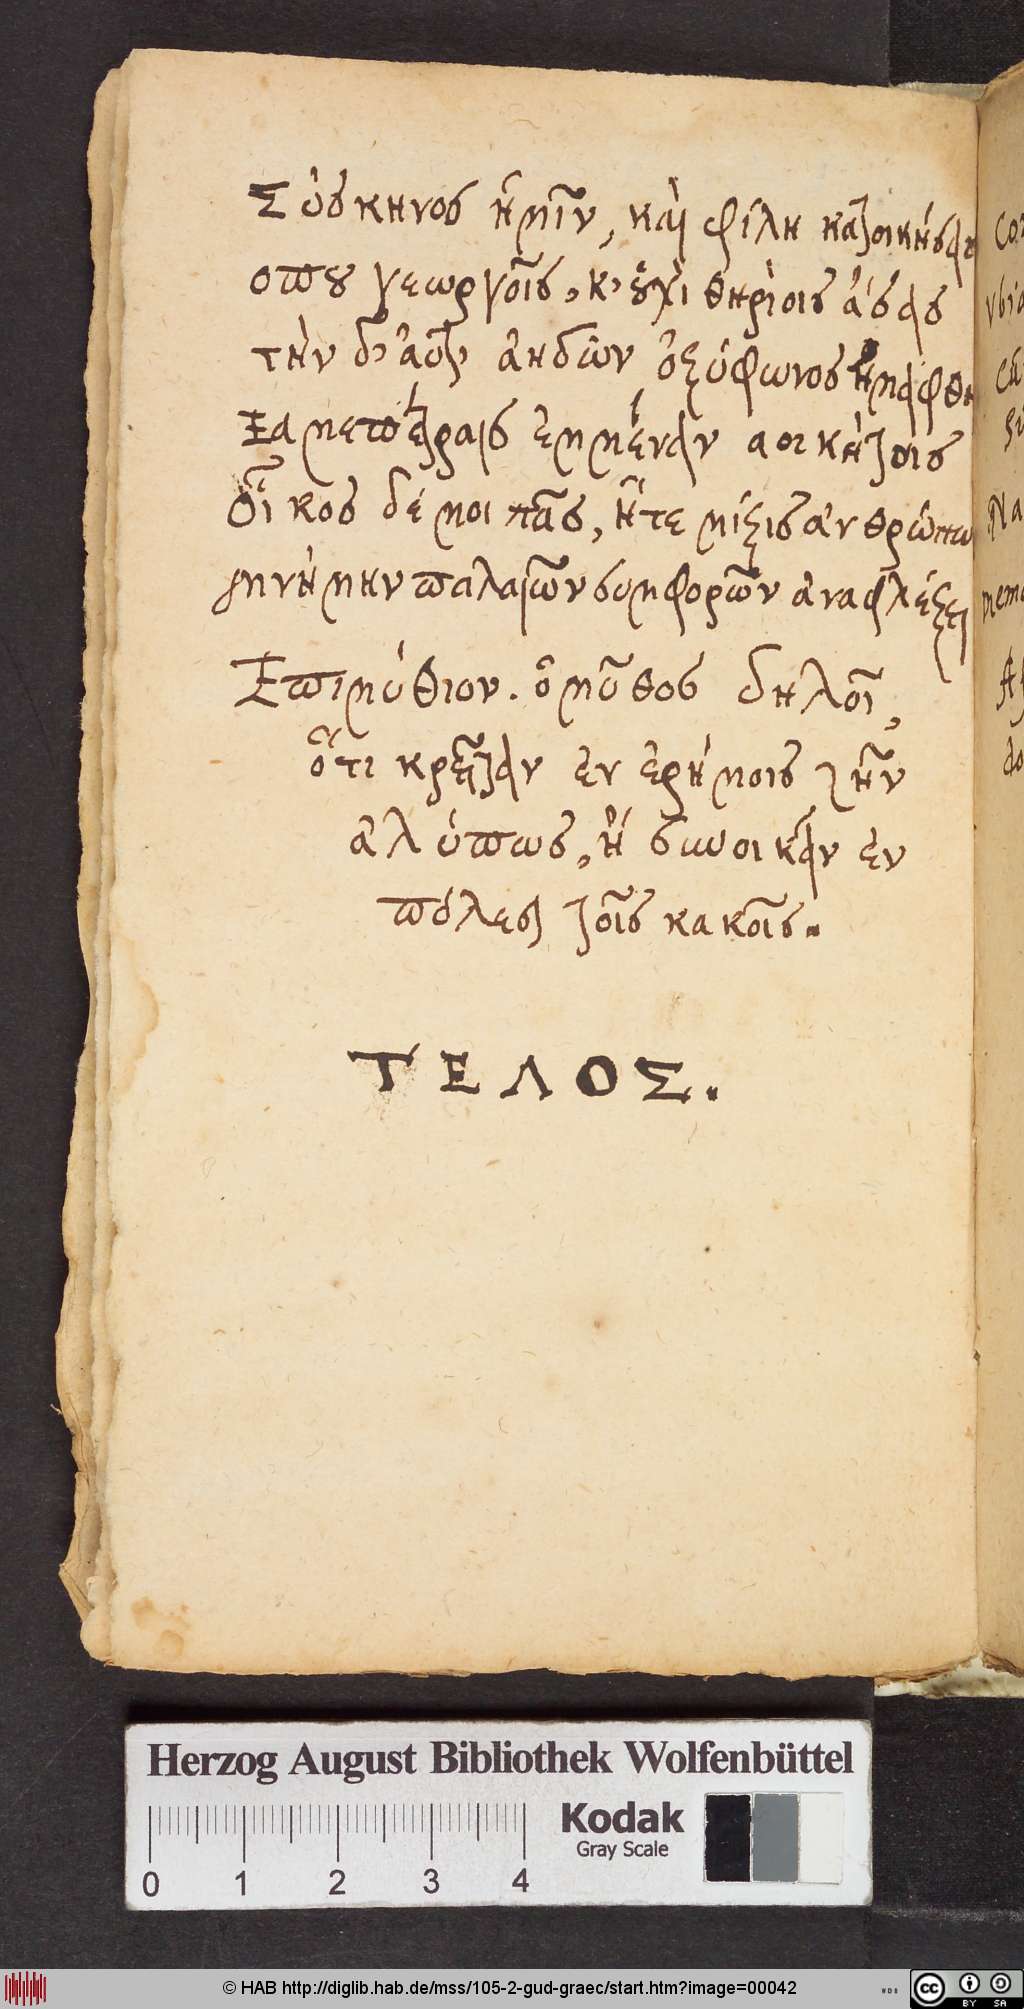 Σύσκηνος ἡμῖν, καὶ φίλη κατοικήσεις
οπου γεωργοῖς, κ' οὐχὶ θηρίοις ἄσεις
τὴν δ' αὖτ' ἀηδὼν ὀξύφωνος ἠμείφθη
Ξα με πέτραις ἐμμένειν αοικήτοις
οἶκος δέ μοι πᾶς, ἥτε μίξις ἀνθρώπω
μνήμην παλαιῶν συμφορῶν ἀναφλέξει
Ἐπιμύθιον. ὁ μῦθος δηλοῖ,
ὅτι κρεῖττον ἐν ἐρήμοις ζῆν
ἀλύπως, ἢ συνοικεῖν ἐν
πόλεσι τοῖς κακοῖς.
ΤΕΛΟΣ.
Herzog August Bibliothek Wolfenbüttel
Kodak
Gray Scale
0 1 2 3 4
© HAB http://diglib.hab.de/mss/105-2-gud-graec/start.htm?image=00042
cc BY SA